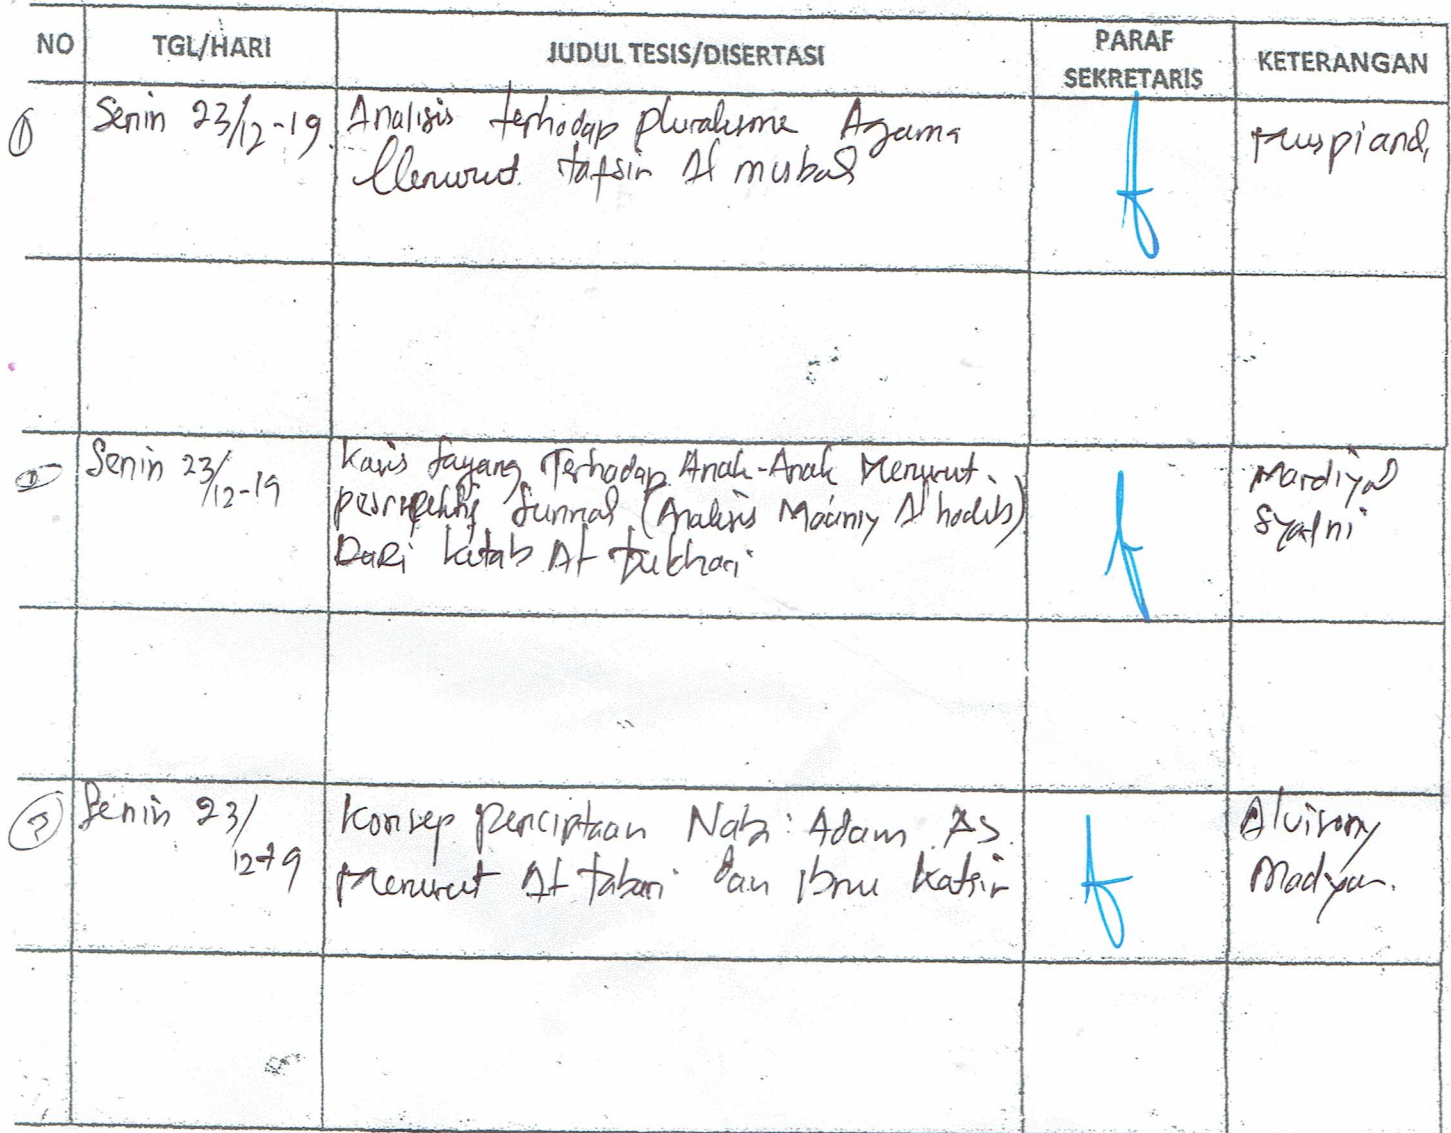 NO TGL/HARI JUDUL TESIS/DISERTASI PARAF SEKRETARIS KETERANGAN
1 Senin 23/12-19 Analisis terhodap pluralisme Agama
Menurut tafsir Al misbah
2 Senin 23/12-19 Kasis Sayang Terhadap Anak-Anak Menurut Mardiyah
Sunnah (Analisis Ma'aniy Al hadits) Syadni
Dari kitab At Bukhari
3 Senin 23/12-19 Konsep penciptaan Nabi Adam AS.
Menurut At tabari dan Ibnu Katsir Madyan.